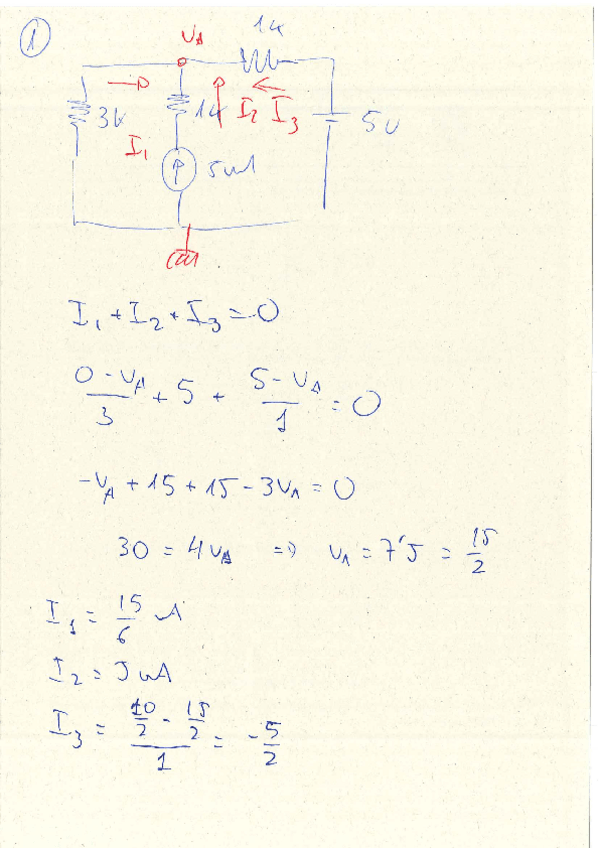 1
VA
1k
3k
1k
I1
I2
I3
5V
5mA
I1 + I2 + I3 = 0
(0 - VA)/3 + 5 + (5 - VA)/1 = 0
-VA + 15 + 15 - 3VA = 0
30 = 4VA => VA = 7'5 = 15/2
I1 = 15/6 mA
I2 = 5 mA
I3 = (10/2 - 15/2)/1 = -5/2